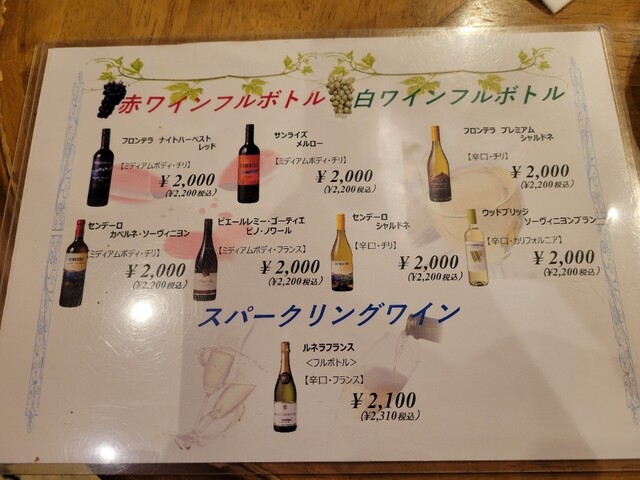 赤ワインフルボトル
白ワインフルボトル
フロンテラ ナイトハーベスト
レッド
【ミディアムボディ・チリ】
￥2,000
(￥2,200税込)
サンライズ
メルロー
【ミディアムボディ・チリ】
￥2,000
(￥2,200税込)
フロンテラ プレミアム
シャルドネ
【辛口・チリ】
￥2,000
(￥2,200税込)
センデーロ
カベルネ・ソーヴィニヨン
【ミディアムボディ・チリ】
￥2,000
(￥2,200税込)
ピエールレミー・ゴーティエ
ピノ・ノワール
【ミディアムボディ・フランス】
￥2,000
(￥2,200税込)
センデーロ
シャルドネ
【辛口・チリ】
￥2,000
(￥2,200税込)
ウッドブリッジ
ソーヴィニヨンブラン
【辛口・カリフォルニア】
￥2,000
(￥2,200税込)
スパークリングワイン
ルネラフランス
＜フルボトル＞
【辛口・フランス】
￥2,100
(￥2,310税込)